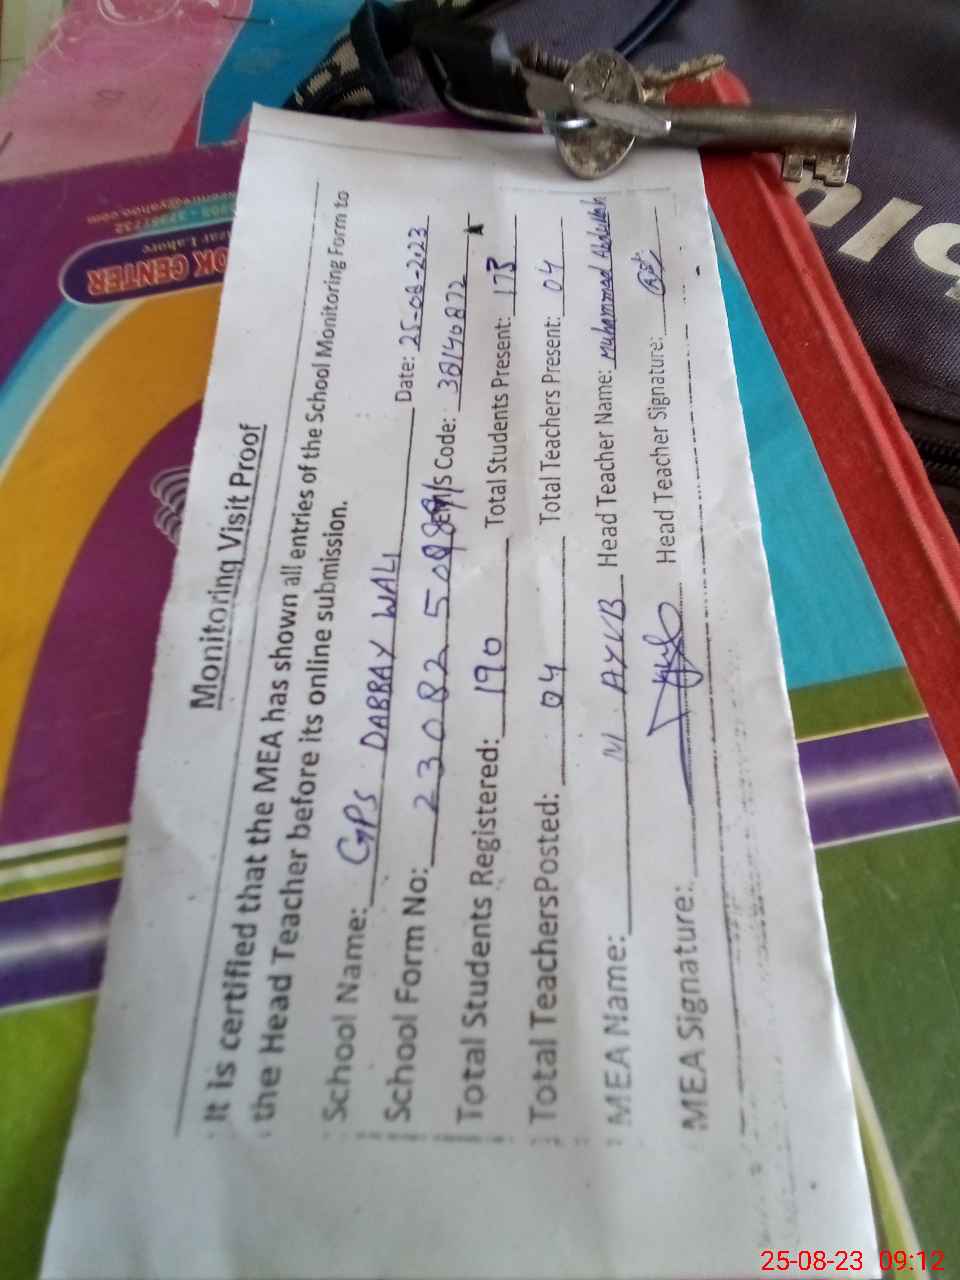 Monitoring Visit Proof
It is certified that the MEA has shown all entries of the School Monitoring Form to
the Head Teacher before its online submission.
School Name: GPS DABRAY WALI Date: 25-08-2023
School Form No: 23082 50989/ EMIS Code: 38140872
Total Students Registered: 190 Total Students Present: 173
Total TeachersPosted: 04 Total Teachers Present: 04
MEA Name: M. AYUB Head Teacher Name: Muhammad Abdullah
MEA Signature: Head Teacher Signature:
OK CENTER
zar Lahore
@yahoo.com
25-08-23 09:12